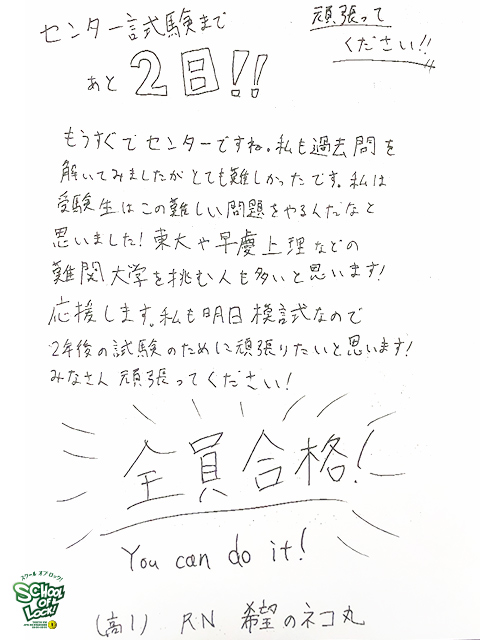 センター試験まで
あと 2日!!
頑張って
ください!!
もうすぐでセンターですね。私も過去問を
解いてみましたがとても難しかったです。私は
受験生はこの難しい問題をやるんだなと
思いました!東大や早慶上理などの
難関大学を挑む人も多いと思います!
応援します。私も明日模試なので
2年後の試験のために頑張りたいと思います!
みなさん頑張ってください!
全員合格!
You can do it!
スクール オブ ロック!
SCHOOL
OF
LOCK!
(高1) RN 希望のネコ丸